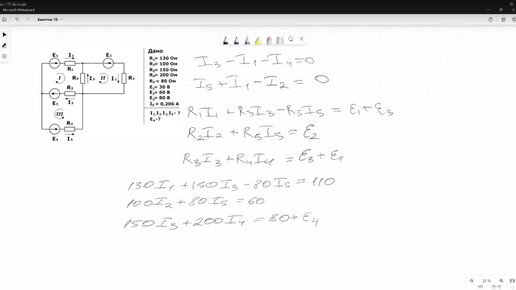 Microsoft Whiteboard
Заметка 10
E₁ I₁ E₂
R₁
I R₅ I₅ II I₂ R₂
E₃ R₃
I₃
III
E₄ R₄
I₄
Дано
R₁= 130 Ом
R₂= 100 Ом
R₃= 150 Ом
R₄= 200 Ом
R₅ = 80 Ом
E₁= 30 В
E₂= 60 В
E₃= 80 В
I₅ = 0,206 А
I₁,I₂,I₃,I₄-?
E₄-?
I₃-I₁-I₄=0
I₅+I₁-I₂=0
R₁I₁+R₃I₃-R₅I₅=E₁+E₃
R₂I₂+R₅I₅=E₂
R₃I₃+R₄I₄=E₃+E₄
130I₁+150I₃-80I₅=110
100I₂+80I₅=60
150I₃+200I₄=80+E₄
25 %